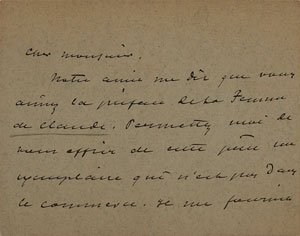 Cher Monsieur,
Notre amie me dit que vous
aimez la préface de la Femme
de Claude. Permettez moi de
vous offrir de cette pièce un
exemplaire qui n'est pas dans
le commerce. Je me